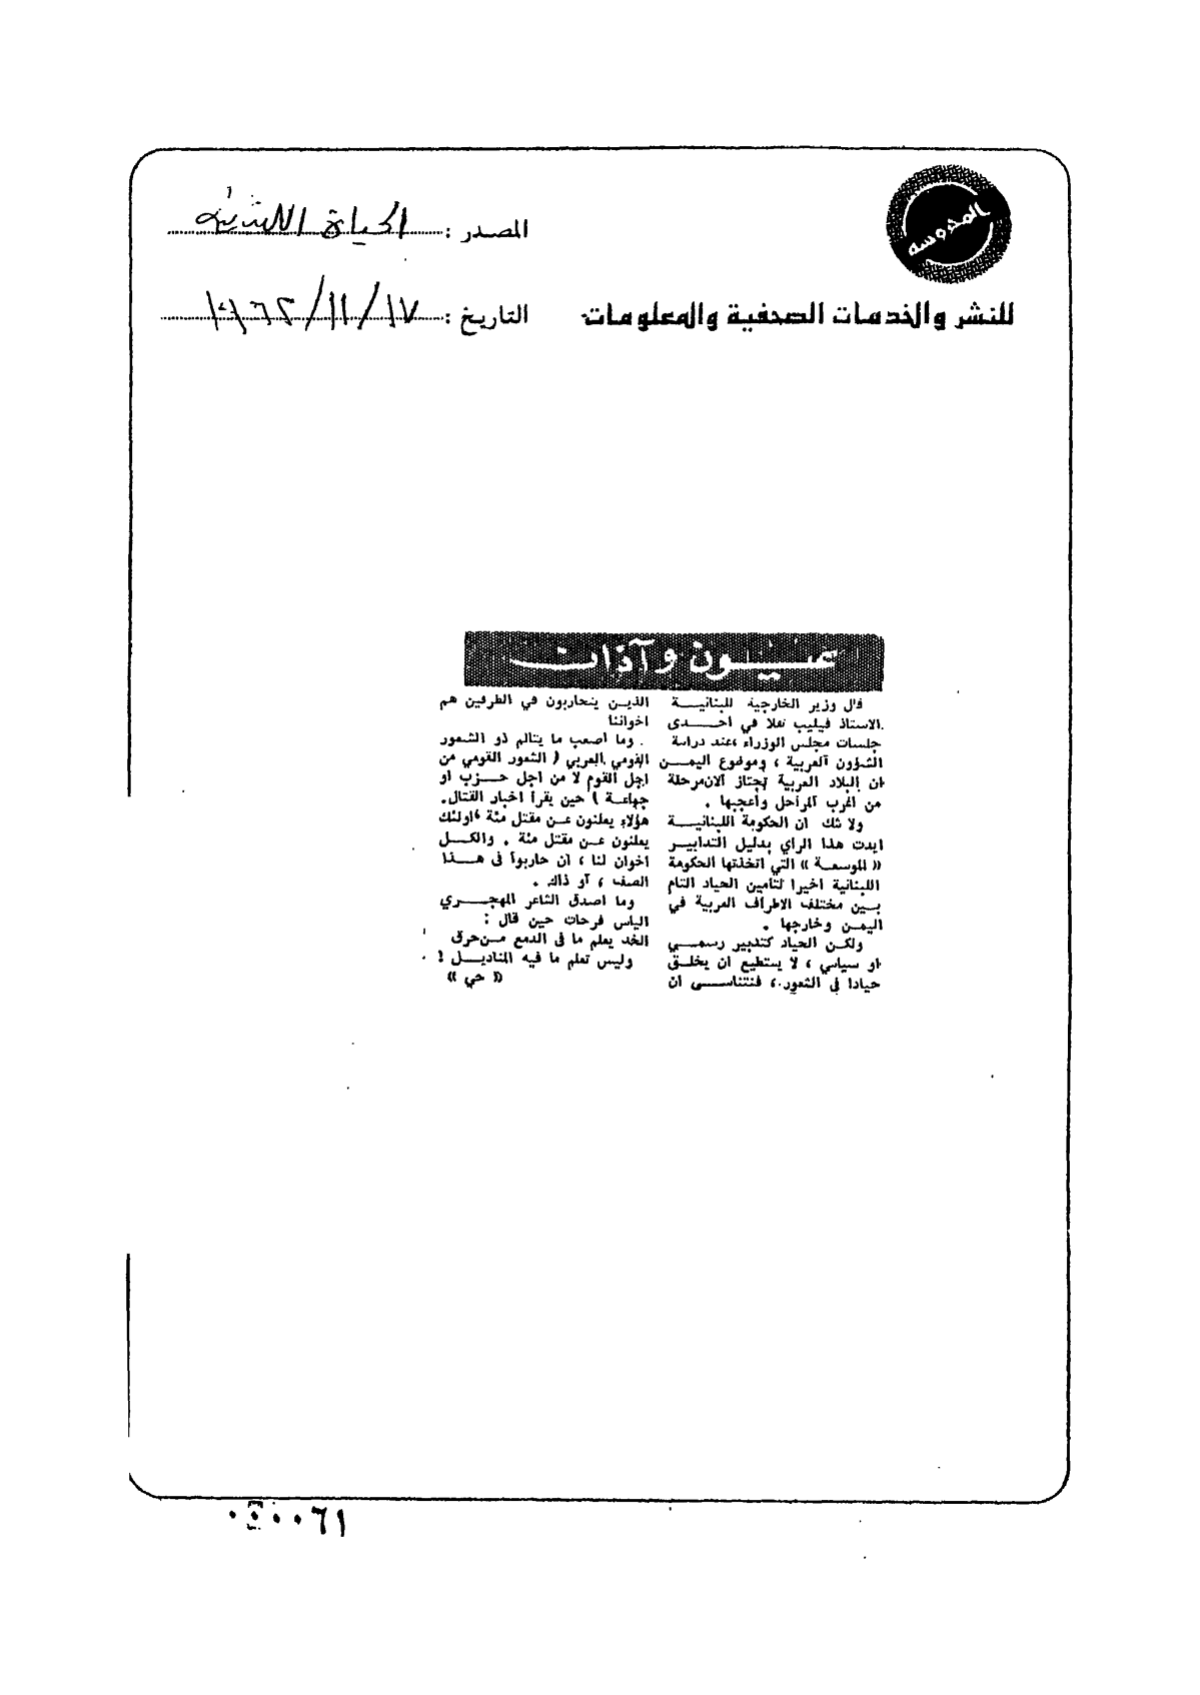 المدوسه
للنشر والخدمات الصحفية والمعلومات
المصدر : الحياة اللبنانية
التاريخ : ١٩٦٢/١١/١٧
عيون وآذان
قال وزير الخارجية للبنانية
الاستاذ فيليب تقلا في احدى
جلسات مجلس الوزراء ،عند دراسة
الشؤون العربية ، وموضوع اليمن
ان البلاد العربية تجتاز الان مرحلة
من اغرب المراحل وأعجبها .
ولا شك ان الحكومة اللبنانية
ايدت هذا الراي بدليل التدابير
« الموسعة » التي اتخذتها الحكومة
اللبنانية اخيرا لتامين الحياد التام
بين مختلف الاطراف العربية في
اليمن وخارجها .
ولكن الحياد كتدبير رسمي
او سياسي ، لا يستطيع ان يخلق
حيادا في الشعور ، فنتناسى ان
الذين يتحاربون في الطرفين هم
اخواننا
. وما اصعب ما يتالم ذو الشعور
القومي العربي ( الشعور القومي من
اجل القوم لا من اجل حزب او
جماعة ) حين يقرأ اخبار القتال.
هؤلاء يعلنون عن مقتل مئة ،اولئك
يعلنون عن مقتل مئة . والكل
اخوان لنا ، ان حاربوا في هذا
الصف ، أو ذاك .
وما اصدق الشاعر المهجري
الياس فرحات حين قال :
الخد يعلم ما في الدمع من حرق
وليس تعلم ما فيه المناديل !
« حي »
٠٤٠٠٦١